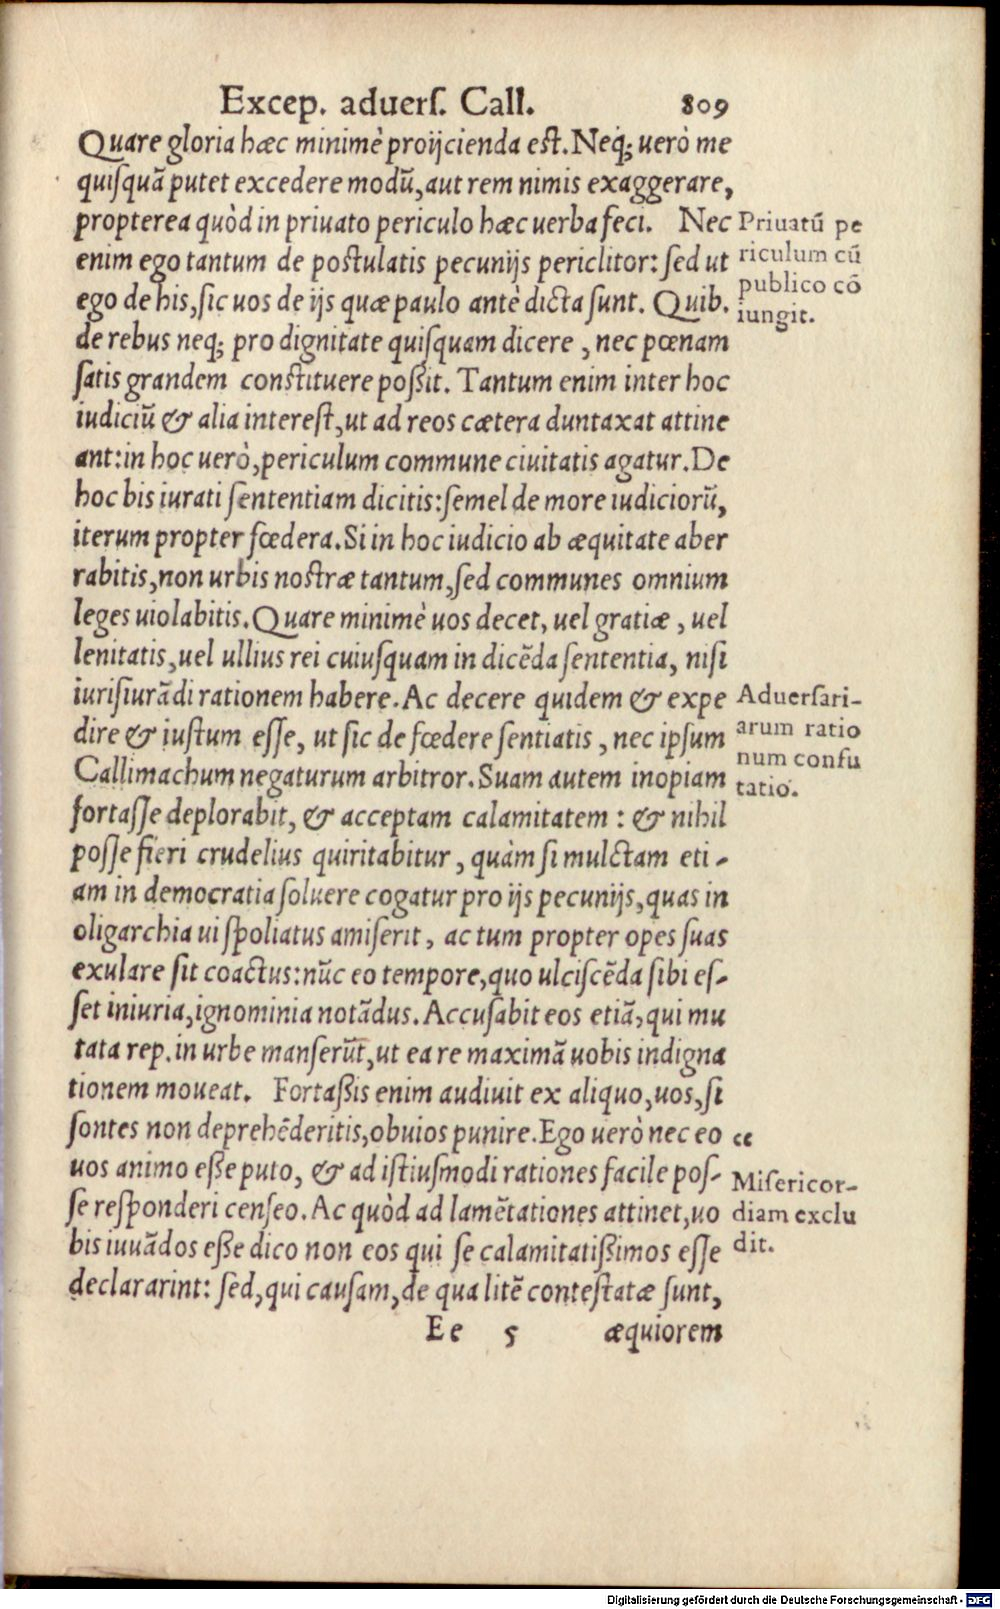 Excep. aduerſ. Call. 809
Quare gloria hæc minimè proijcienda eſt. Neq; uerò me
quiſquã putet excedere modũ, aut rem nimis exaggerare,
propterea quòd in priuato periculo hæc uerba feci. Nec
enim ego tantum de poſtulatis pecunijs periclitor: ſed ut
ego de his, ſic uos de ijs quæ paulo antè dicta ſunt. Quib.
de rebus neq; pro dignitate quiſquam dicere, nec pœnam
ſatis grandem conſtituere poßit. Tantum enim inter hoc
iudiciũ & alia intereſt, ut ad reos cætera duntaxat attine
ant: in hoc uerò, periculum commune ciuitatis agatur. De
hoc bis iurati ſententiam dicitis: ſemel de more iudiciorũ,
iterum propter fœdera. Si in hoc iudicio ab æquitate aber
rabitis, non urbis noſtræ tantum, ſed communes omnium
leges uiolabitis. Quare minimè uos decet, uel gratiæ, uel
lenitatis, uel ullius rei cuiuſquam in dicẽda ſententia, niſi
iuriſiurãdi rationem habere. Ac decere quidem & expe
dire & iuſtum eſſe, ut ſic de fœdere ſentiatis, nec ipſum
Callimachum negaturum arbitror. Suam autem inopiam
fortaſſe deplorabit, & acceptam calamitatem: & nihil
poſſe fieri crudelius quiritabitur, quàm ſi mulctam eti-
am in democratia ſoluere cogatur pro ijs pecunijs, quas in
oligarchia ui ſpoliatus amiſerit, ac tum propter opes ſuas
exulare ſit coactus: nũc eo tempore, quo ulciſcẽda ſibi eſ-
ſet iniuria, ignominia notãdus. Accuſabit eos etiã, qui mu
tata rep. in urbe manſerũt, ut ea re maximã uobis indigna
tionem moueat. Fortaßis enim audiuit ex aliquo, uos, ſi
ſontes non deprehẽderitis, obuios punire. Ego uerò nec eo
uos animo eße puto, & ad iſtiuſmodi rationes facile poſ-
ſe reſponderi cenſeo. Ac quòd ad lamẽtationes attinet, uo
bis iuuãdos eße dico non eos qui ſe calamitatißimos eſſe
declararint: ſed, qui cauſam, de qua litẽ conteſtatæ ſunt,
Ee 5 æquiorem
Priuatũ pe
riculum cũ
publico cõ
iungit.
Aduerſari-
arum ratio
num confu
tatio.
cc
Miſericor-
diam exclu
dit.
Digitalisierung gefördert durch die Deutsche Forschungsgemeinschaft - DFG